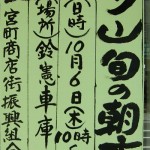 山旬の朝市
(日時)10月6日(木)
10時
(場所)鈴憲車庫
宮町商店街振興組合